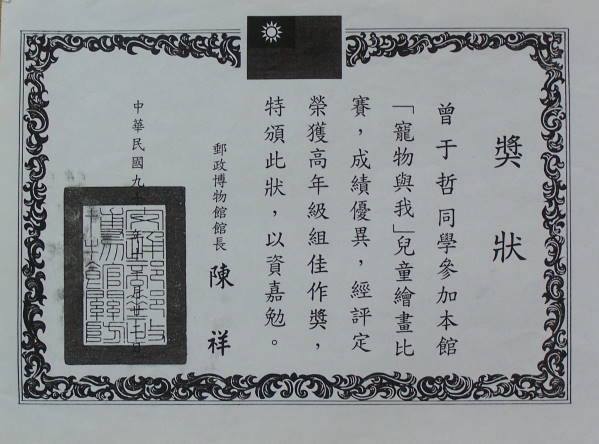 獎狀
曾于哲同學參加本館
「寵物與我」兒童繪畫比
賽，成績優異，經評定
榮獲高年級組佳作獎，
特頒此狀，以資嘉勉。
郵政博物館館長 陳祥
中華民國九十